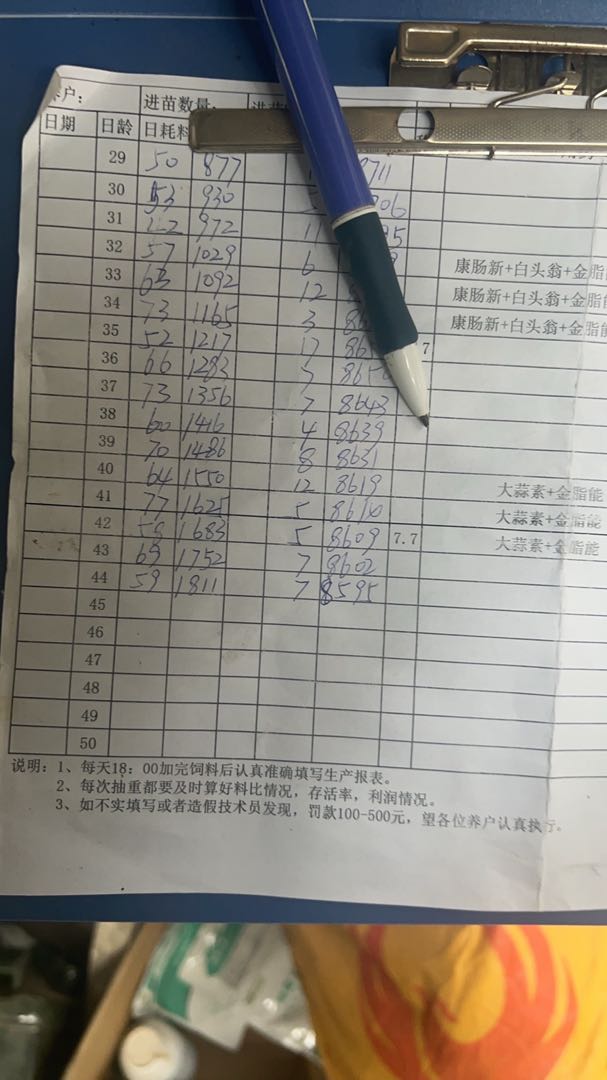 户： 进苗数量：
日期 日龄 日耗料
29 50 877 711
30 53 930 706
31 42 972 11
32 57 1029 6 康肠新+白头翁+金脂能
33 63 1092 12 康肠新+白头翁+金脂能
34 73 1165 3 康肠新+白头翁+金脂能
35 52 1217 7
36 66 1283
37 73 1356 7 8643
38 60 1416 4 8639
39 70 1486 8 8631
40 64 1550 12 8619 大蒜素+金脂能
41 77 1625 5 大蒜素+金脂能
42 58 1683 5 8609 7.7 大蒜素+金脂能
43 69 1752 7 8602
44 59 1811 7 8595
45
46
47
48
49
50
说明：1、每天18：00加完饲料后认真准确填写生产报表。
2、每次抽重都要及时算好料比情况，存活率，利润情况。
3、如不实填写或者造假技术员发现，罚款100-500元，望各位养户认真执行。